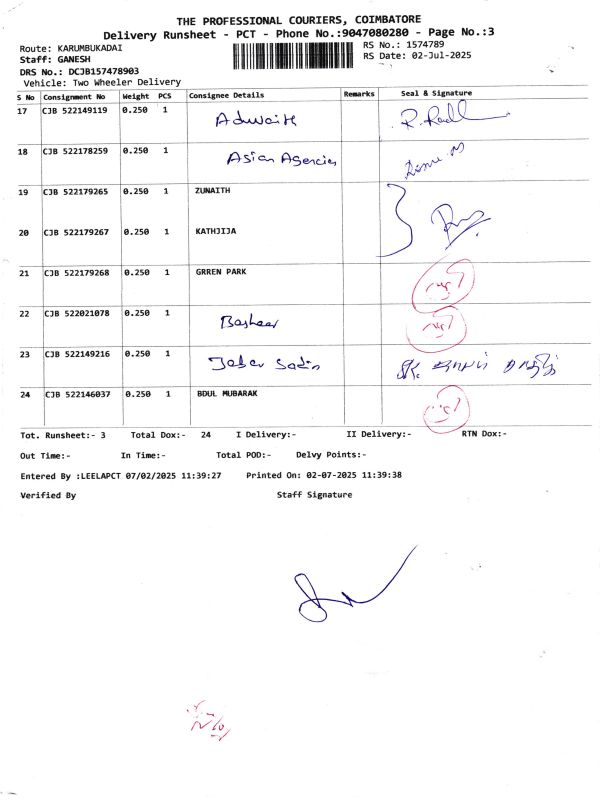 THE PROFESSIONAL COURIERS, COIMBATORE
Delivery Runsheet - PCT - Phone No.:9047080280 - Page No.:3
Route: KARUMBUKADAI RS No.: 1574789
Staff: GANESH RS Date: 02-Jul-2025
DRS No.: DCJB157478903
Vehicle: Two Wheeler Delivery
S No Consignment No Weight PCS Consignee Details Remarks Seal & Signature
17 CJB 522149119 0.250 1 Adwaith
18 CJB 522178259 0.250 1 Asian Agencies
19 CJB 522179265 0.250 1 ZUNAITH
20 CJB 522179267 0.250 1 KATHJIJA
21 CJB 522179268 0.250 1 GRREN PARK
22 CJB 522021078 0.250 1 Basheer
23 CJB 522149216 0.250 1 Jaber Sadin
24 CJB 522146037 0.250 1 BDUL MUBARAK
Tot. Runsheet:- 3 Total Dox:- 24 I Delivery:- II Delivery:- RTN Dox:-
Out Time:- In Time:- Total POD:- Delvy Points:-
Entered By :LEELAPCT 07/02/2025 11:39:27 Printed On: 02-07-2025 11:39:38
Verified By Staff Signature